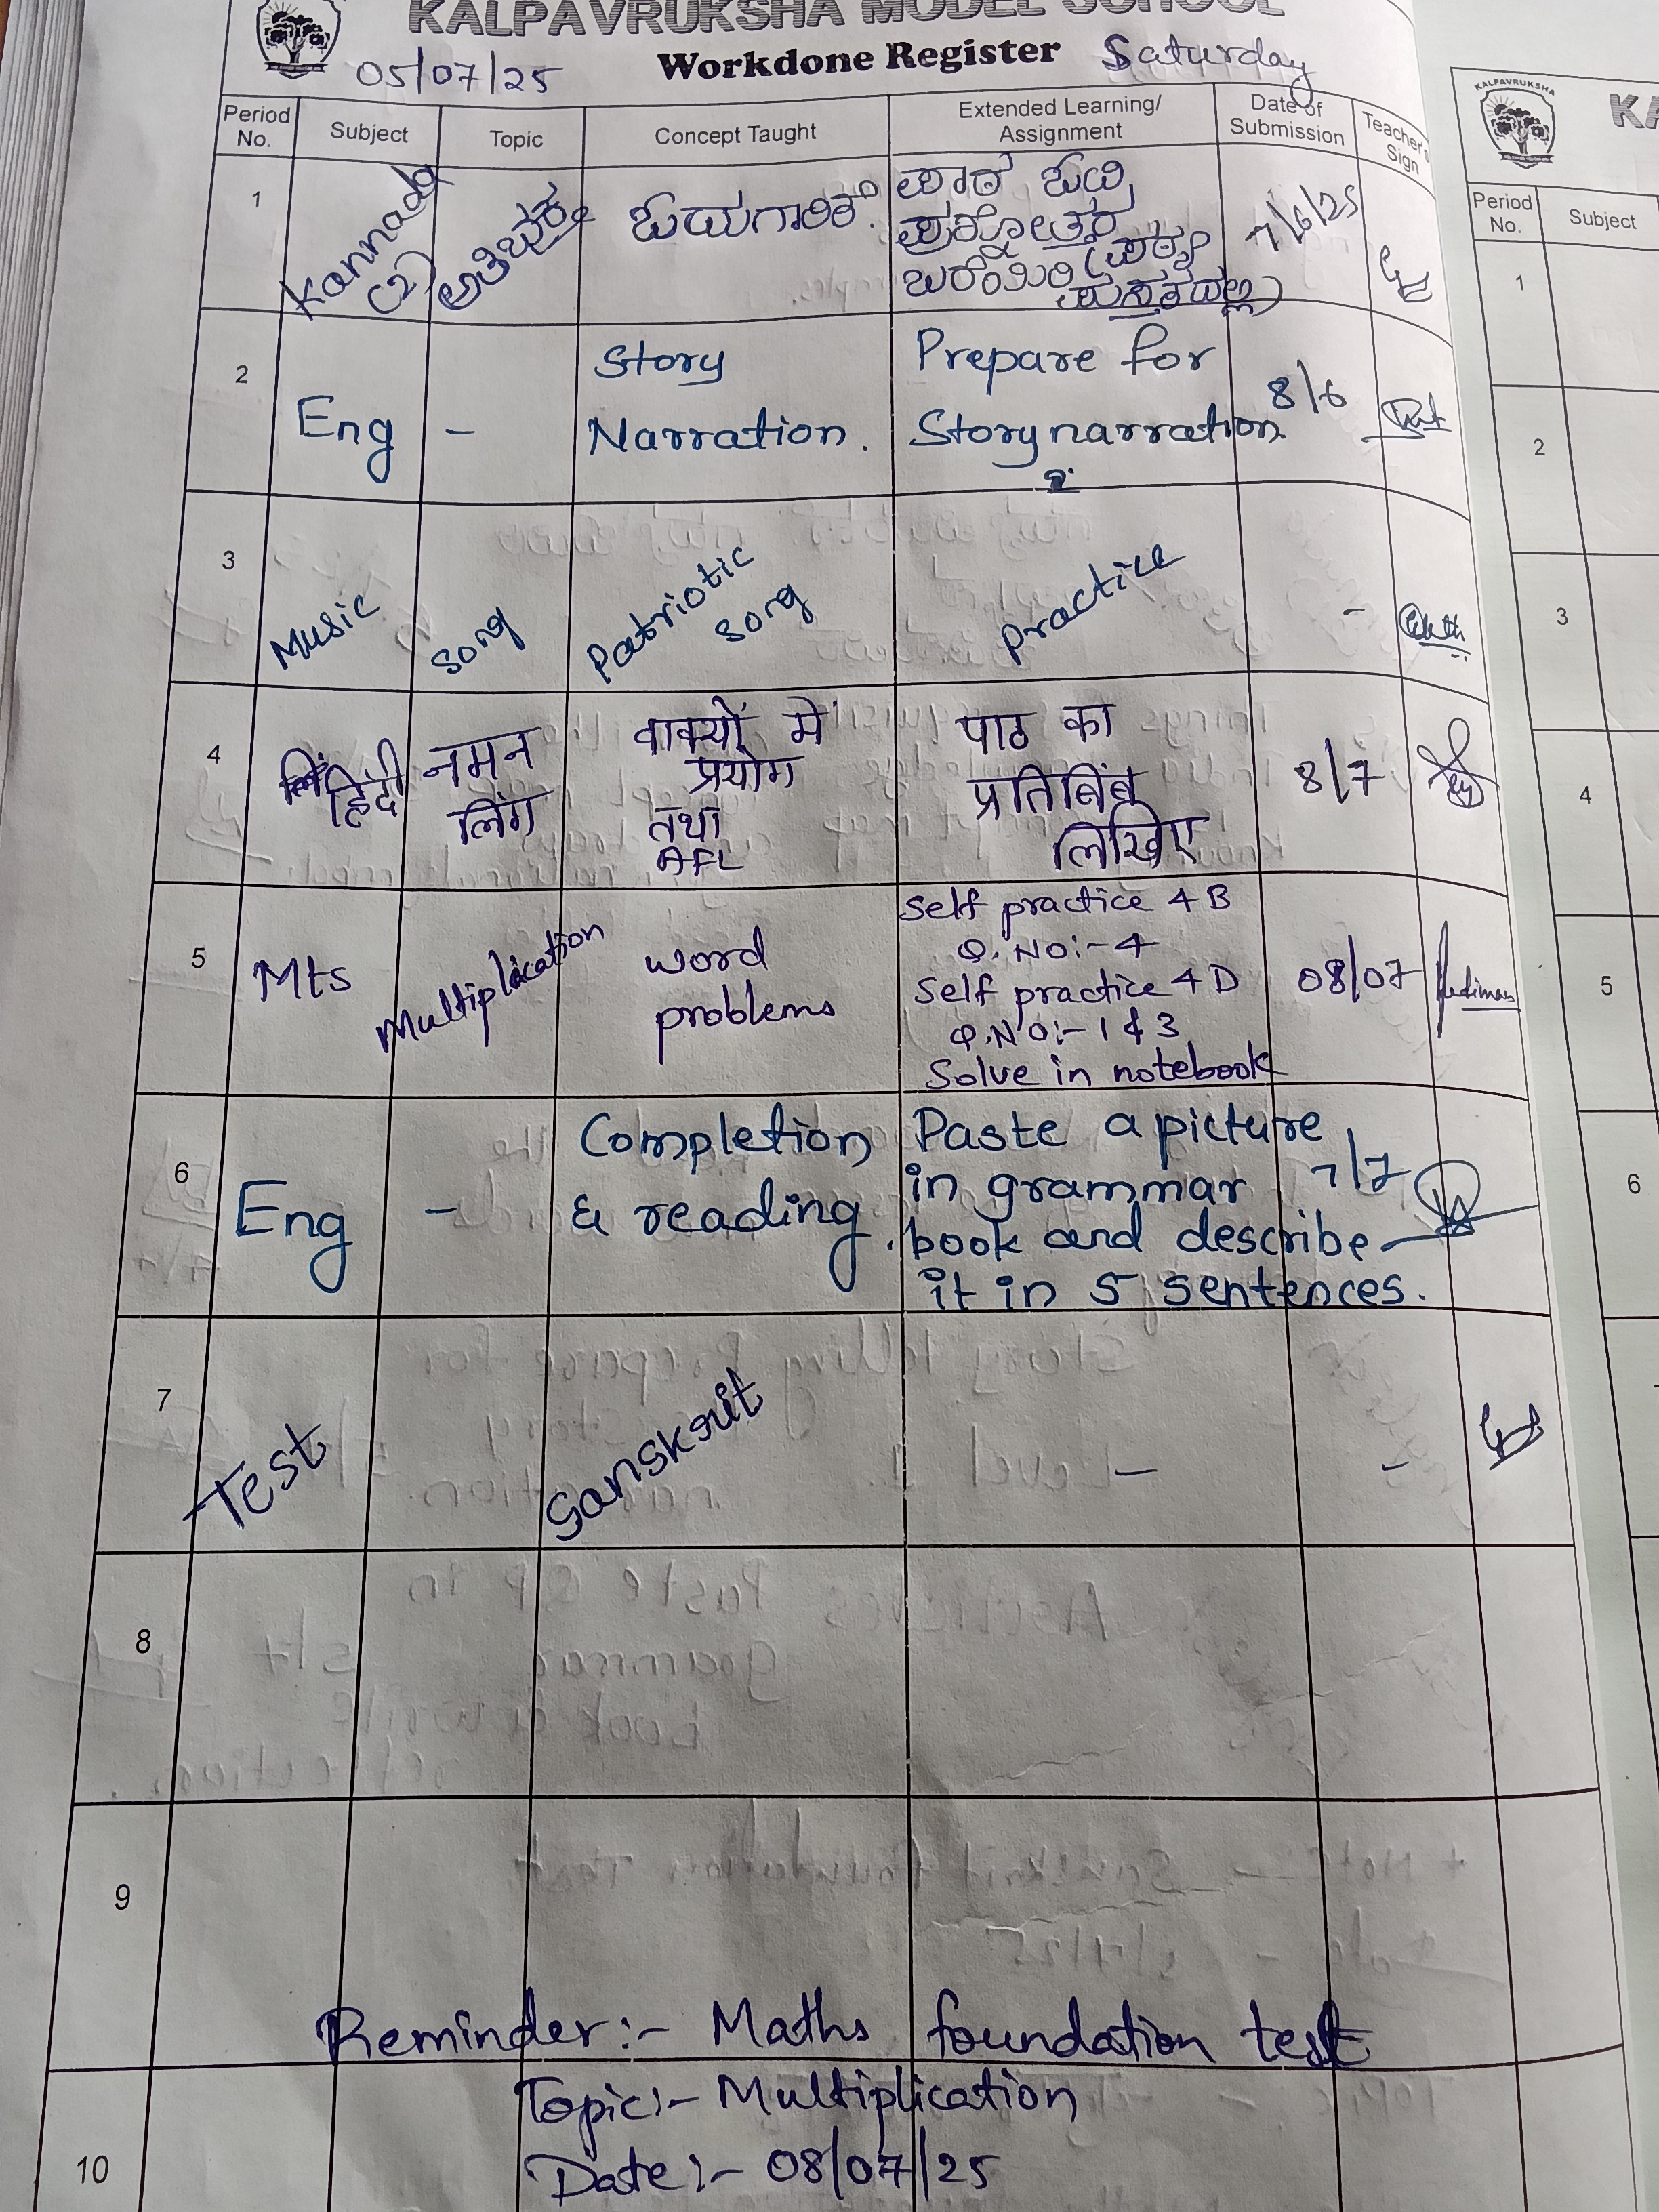 KALPAVRUKSHA MODEL SCHOOL
05/07/25 Workdone Register Saturday
Period No. Subject Topic Concept Taught Extended Learning/ Assignment Date of Submission Teacher's Sign
1 Kannada (2) ಓದುಗಾರಿಕೆ. ಪಾಠ ಓದಿ 7/6/25
ಪ್ರಶ್ನೋತ್ತರ
ಬರೆಯಿರಿ (ಪಠ್ಯ
ಪುಸ್ತಕದಲ್ಲಿ)
2 Eng - Story Prepare for 8/6
Narration. Story narration.
3 Music Song Patriotic song practice -
4 हिंदी नमन वाक्यों में पाठ का 8/7
लिंग प्रयोग प्रतिबिंब
तथा लिखिए
AFL
5 Mts Multiplication word problems Self practice 4B 08/07
Q.NO:-4
Self practice 4D
Q.NO:-1 & 3
Solve in notebook
6 Eng - Completion Paste a picture 7/7
& reading. in grammar
book and describe
it in 5 sentences.
7 Test Sanskrit - -
8
9
Reminder:- Maths foundation test
Topic:- Multiplication
10 Date:- 08/07/25
KALPAVRUKSHA
KA
Period No. Subject
1
2
3
4
5
6